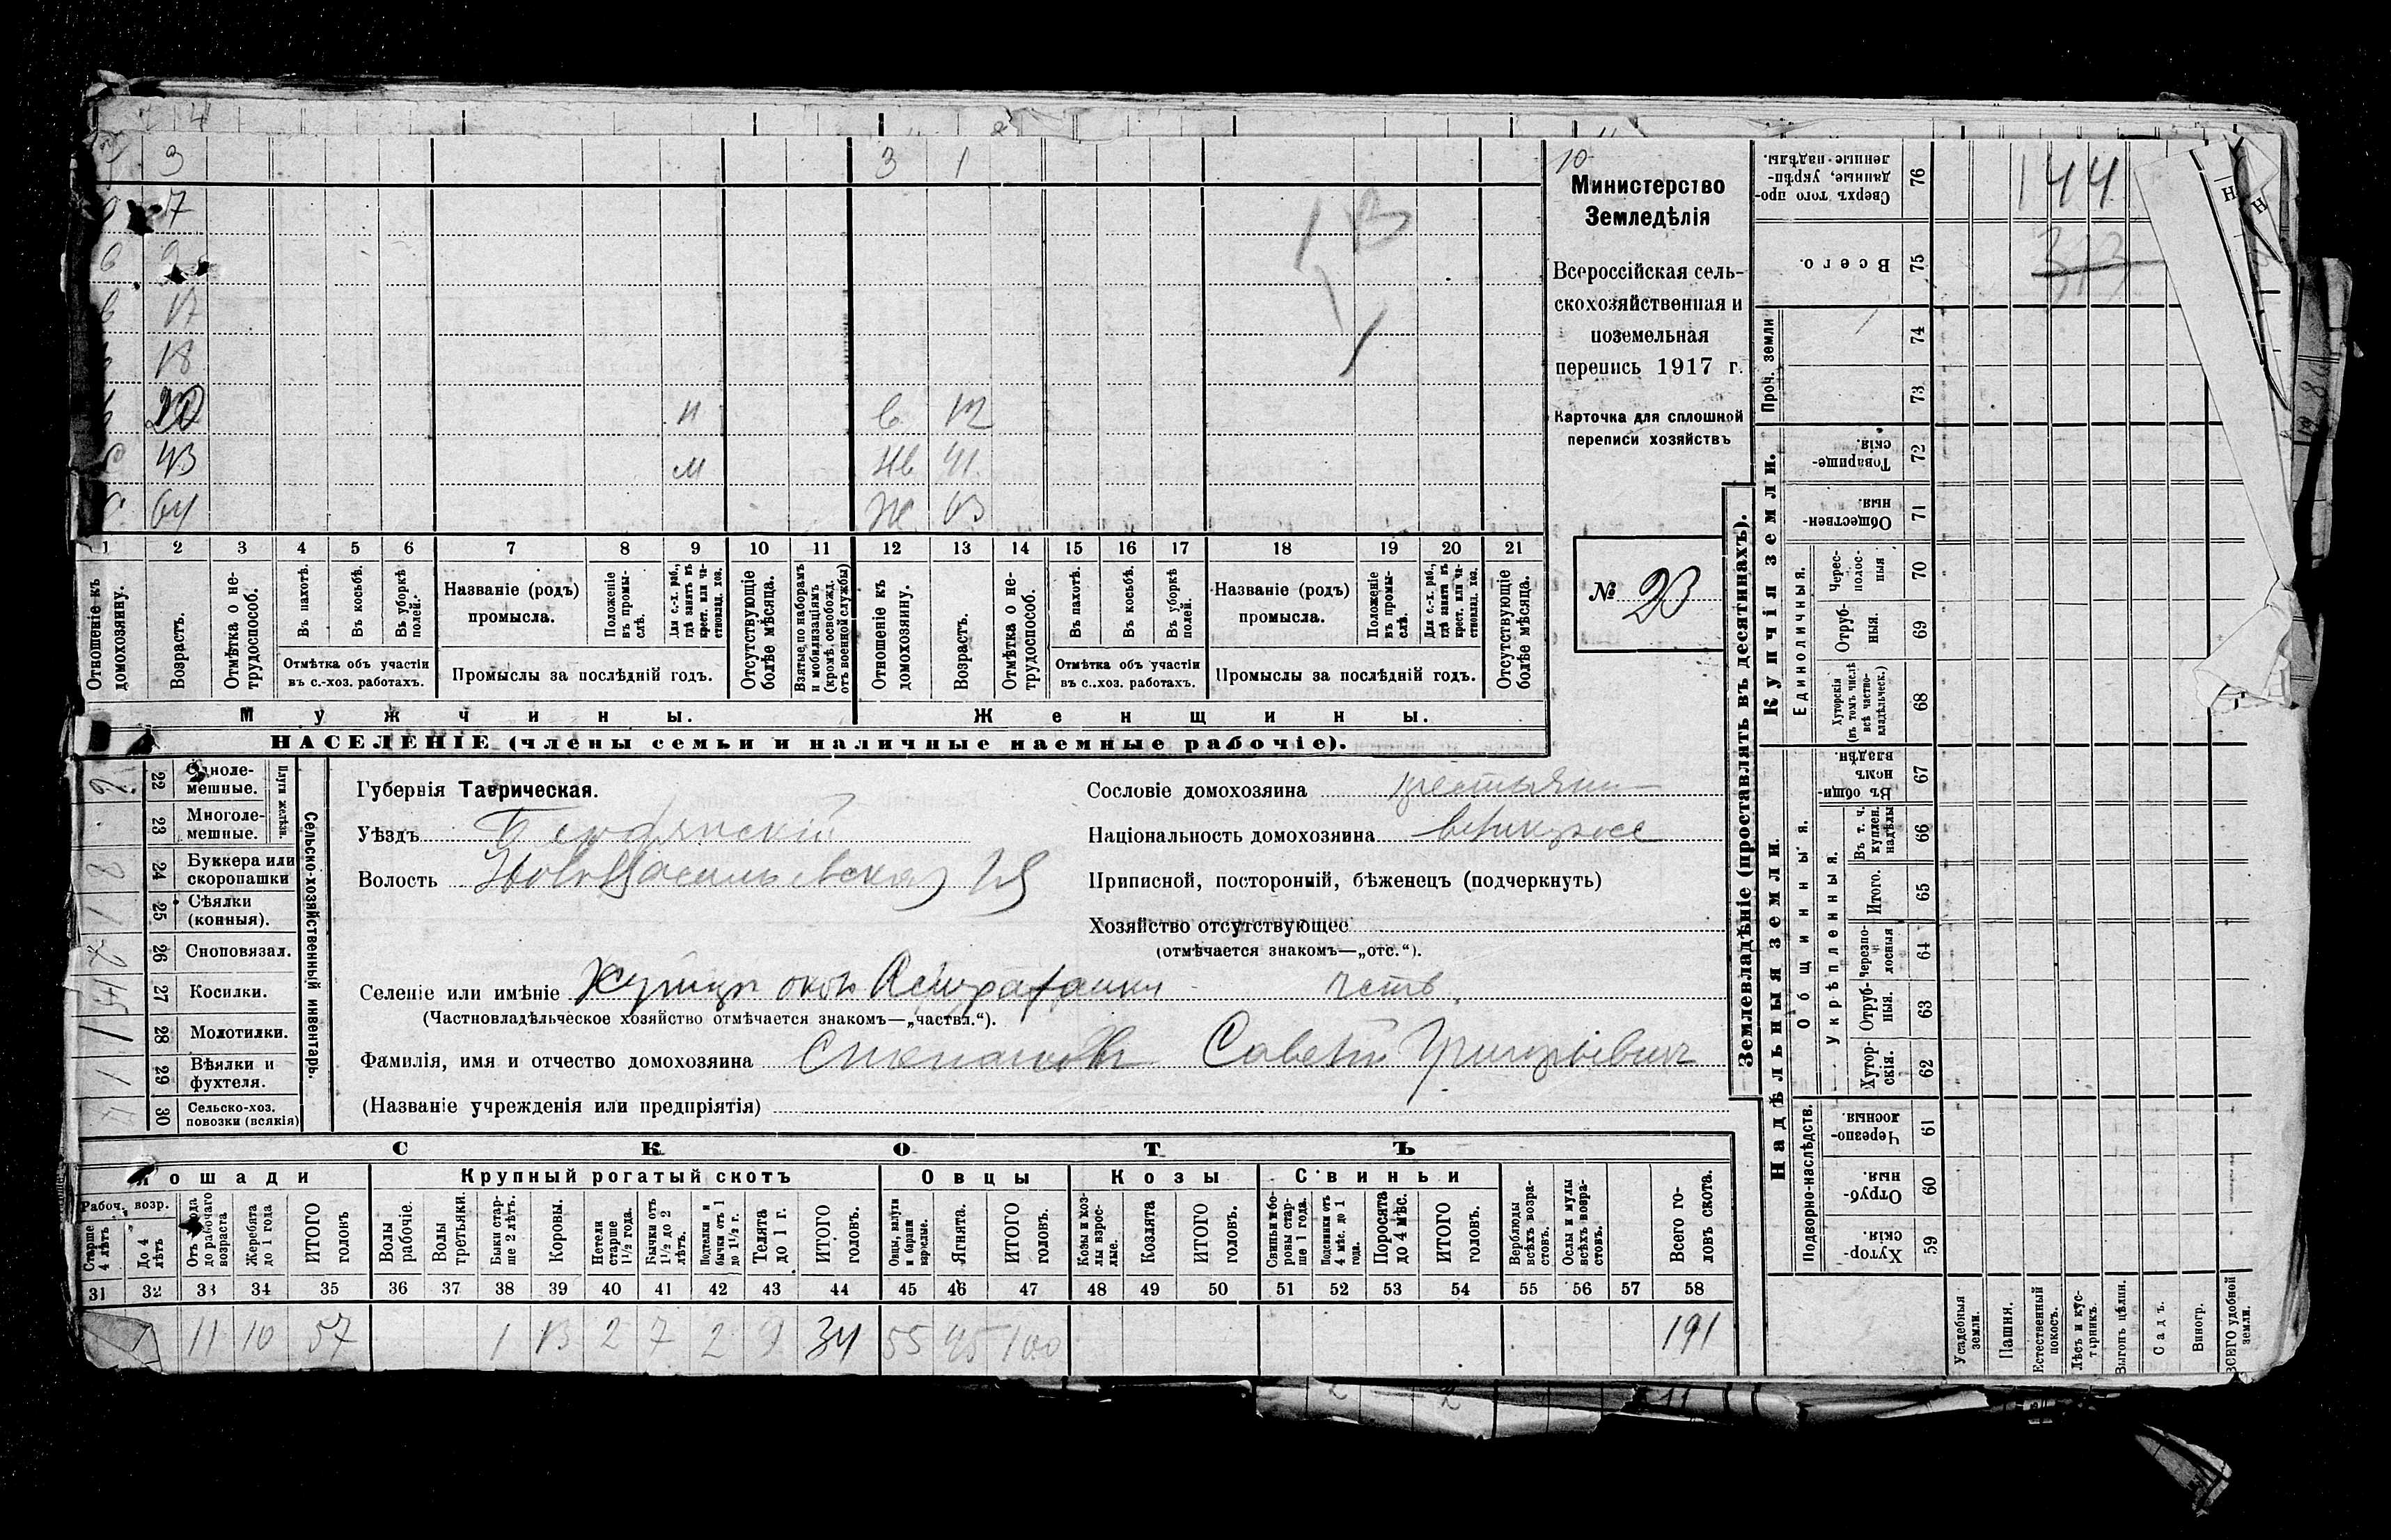 3 3 1
17
17
18
20 н в 12
43 м 41
64 ж 63
1 2 3 4 5 6 7 8 9 10 11 12 13 14 15 16 17 18 19 20 21
Отношеніе къ домохозяину.
Возрастъ.
Отмѣтка о не-трудоспособ.
Въ пахотѣ.
Въ косьбѣ.
Въ уборкѣ полей.
Отмѣтка объ участіи
въ с.-хоз. работахъ.
Названіе (родъ)
промысла.
Положеніе въ промы-слѣ.
Для с.-х. раб., гдѣ занятъ въ крест. или ча-стновлад. хоз.
Промыслы за послѣдній годъ.
Отсутствующіе болѣе мѣсяца.
Взятые по наборамъ и мобилизаціямъ (кромѣ освобожд. отъ военной службы)
Отношеніе къ домохозяину.
Возрастъ.
Отмѣтка о не-трудоспособ.
Въ пахотѣ.
Въ косьбѣ.
Въ уборкѣ полей.
Отмѣтка объ участіи
въ с.-хоз. работахъ.
Названіе (родъ)
промысла.
Положеніе въ промы-слѣ.
Для с.-х. раб., гдѣ занята въ крест. или ча-стновлад. хоз.
Промыслы за послѣдній годъ.
Отсутствующіе болѣе мѣсяца.
Мужчины.
Женщины.
НАСЕЛЕНІЕ (члены семьи и наличные наемные рабочіе).
10
Министерство
Земледѣлія
Всероссійская сель-
скохозяйственная и
поземельная
перепись 1917 г.
Карточка для сплошной
переписи хозяйствъ
№ 23
22 Одноле-
мешные.
Плуги желѣзн.
23 Многоле-
мешные.
24 Буккера или
скоропашки
25 Сѣялки
(конныя).
26 Сноповязал.
27 Косилки.
28 Молотилки.
29 Вѣялки и
фухтеля.
30 Сельско-хоз.
повозки (всякія)
Сельско-хозяйственный инвентарь.
Губернія Таврическая.
Уѣздъ Бердянскій
Волость Ново Васильевская
Селеніе или имѣніе Хутор
(Частновладѣльческое хозяйство отмѣчается знакомъ—„частвл.“).
Фамилія, имя и отчество домохозяина Степановъ Савелій Григорьевич
(Названіе учрежденія или предпріятія)
Сословіе домохозяина крестьянин
Національность домохозяина великоросс
Приписной, посторонній, бѣженецъ (подчеркнуть)
Хозяйство отсутствующее
(отмѣчается знакомъ—„отс.“).
СКОТЪ
Лошади
Крупный рогатый скотъ
Овцы
Козы
Свиньи
Рабоч. возр.
Старше 4 лѣтъ
До 4 лѣтъ
Отъ года до рабочаго возраста
Жеребята до 1 года
ИТОГО головъ
Волы рабочіе.
Волы третьяки.
Быки стар-ше 2 лѣтъ.
Коровы.
Нетели старше 1½ года.
Бычки отъ 1½ до 2 лѣтъ.
Подтелки и бычки отъ 1 до 1½ г.
Телята до 1 г.
ИТОГО головъ.
Овцы, валухи и бараны взрослые.
Ягнята.
ИТОГО головъ.
Козы и коз-лы взрос-лые.
Козлята
ИТОГО головъ.
Свиньи и бо-ровы стар-ше 1 года.
Подсвинки отъ 4 мѣс. до 1 года.
Поросята до 4 мѣс.
ИТОГО головъ.
Верблюды всѣхъ возра-стовъ.
Ослы и мулы всѣхъ возра-стовъ.
Всего го-ловъ скота.
31 32 33 34 35 36 37 38 39 40 41 42 43 44 45 46 47 48 49 50 51 52 53 54 55 56 57 58
11 10 57 1 13 2 7 2 9 34 55 45 100 191
Землевладѣніе (проставлять въ десятинахъ).
Купчія земли.
Сверхъ того про-данные, укрѣп-ленные надѣлы. 76 144
Всего. 75 313
Проч. земли 74
73
Товарище-скія. 72
Обществен-ныя. 71
Единоличныя.
Черес-полос-ныя 70
Отруб-ныя. 69
Хуторскія (въ томъ числѣ всѣ частно-владѣльческ.) 68
Надѣльныя земли.
Общинныя.
Въ общи-номъ владѣн. 67
Укрѣпленныя.
Въ т. ч. куплен. надѣлы 66
Итого. 65
Черезпо-лосныя 64
Отруб-ныя. 63
Хутор-скія. 62
Подворно-наслѣдств.
Черезпо-лосныя 61
Отруб-ныя. 60
Хутор-скія. 59
Усадебныя земли.
Пашня.
Естественный покосъ.
Лѣсъ и кус-тарникъ.
Выгонъ цѣлин.
Садъ.
Виногр.
ВСЕГО удобной земли.